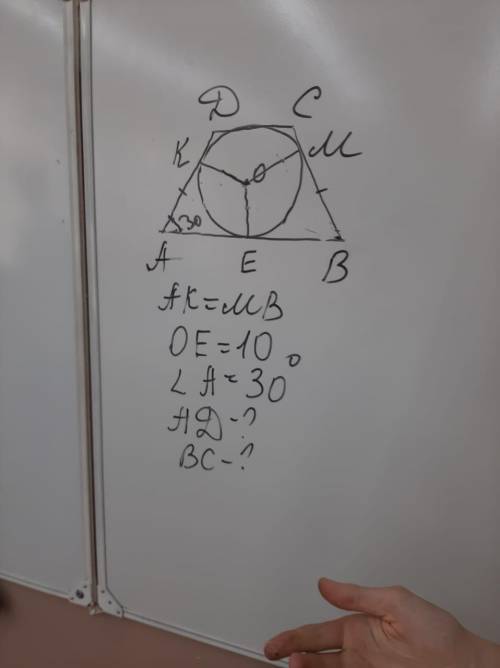 D C
K M
O
30
A E B
AK=MB
OE=10
∠A=30°
AD-?
BC-?